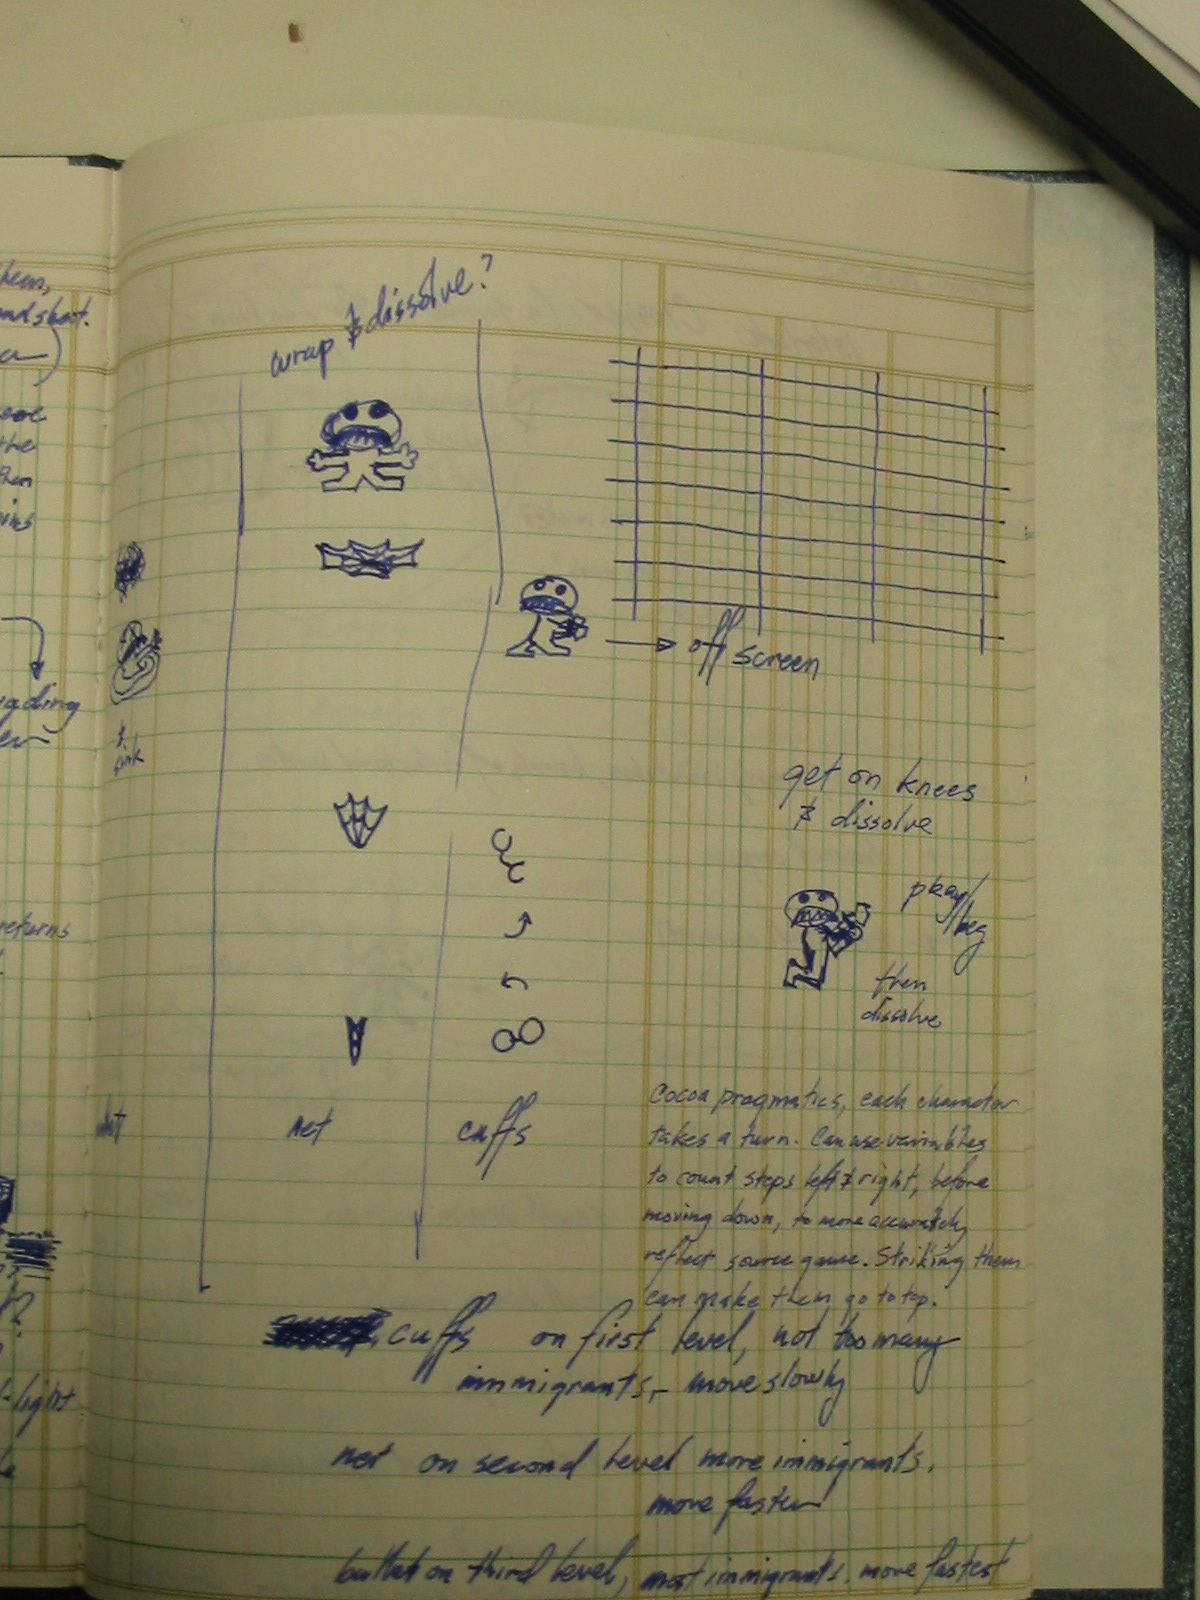 hem,
and shoot.
the
then
returns
light
wrap & dissolve?
off screen
& sink
get on knees
& dissolve
pray/
beg
then
dissolve
net
cuffs
Cocoa pragmatics, each character
takes a turn. Can use variables
to count steps left & right, before
moving down, to more accurately
reflect source game. Striking them
can make them go to top.
cuffs on first level, not too many
immigrants, move slowly
net on second level more immigrants,
move faster
bullet on third level, most immigrants, move fastest